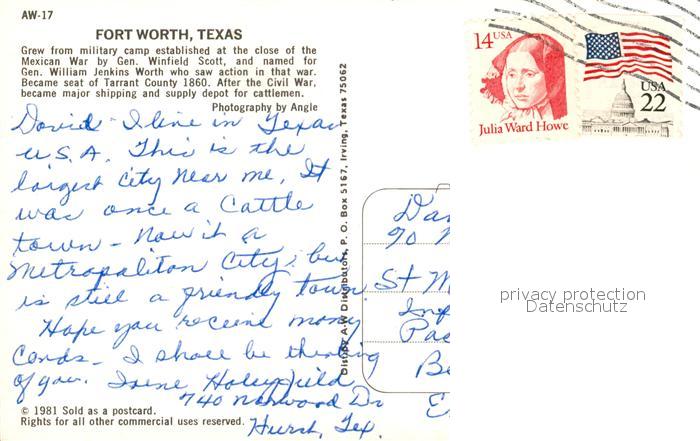 AW-17
FORT WORTH, TEXAS
Grew from military camp established at the close of the
Mexican War by Gen. Winfield Scott, and named for
Gen. William Jenkins Worth who saw action in that war.
Became seat of Tarrant County 1860. After the Civil War,
became major shipping and supply depot for cattlemen.
Photography by Angle
David - I live in Texas
U.S.A. This is the
largest city near me. It
was once a Cattle
town - Now it a
Metropolitan City; but
is still a friendly town
Hope you receive many
Cards. I shall be thinking
of you. Irene Holeyfield
740 Norwood Dr
Hurst, Tex.
© 1981 Sold as a postcard.
Rights for all other commercial uses reserved.
Dist. by A-W Distributors, P. O. Box 5167, Irving, Texas 75062
14 USA
Julia Ward Howe
USA
22
Da
90
St M
Inf
Pa
Be
E
privacy protection
Datenschutz